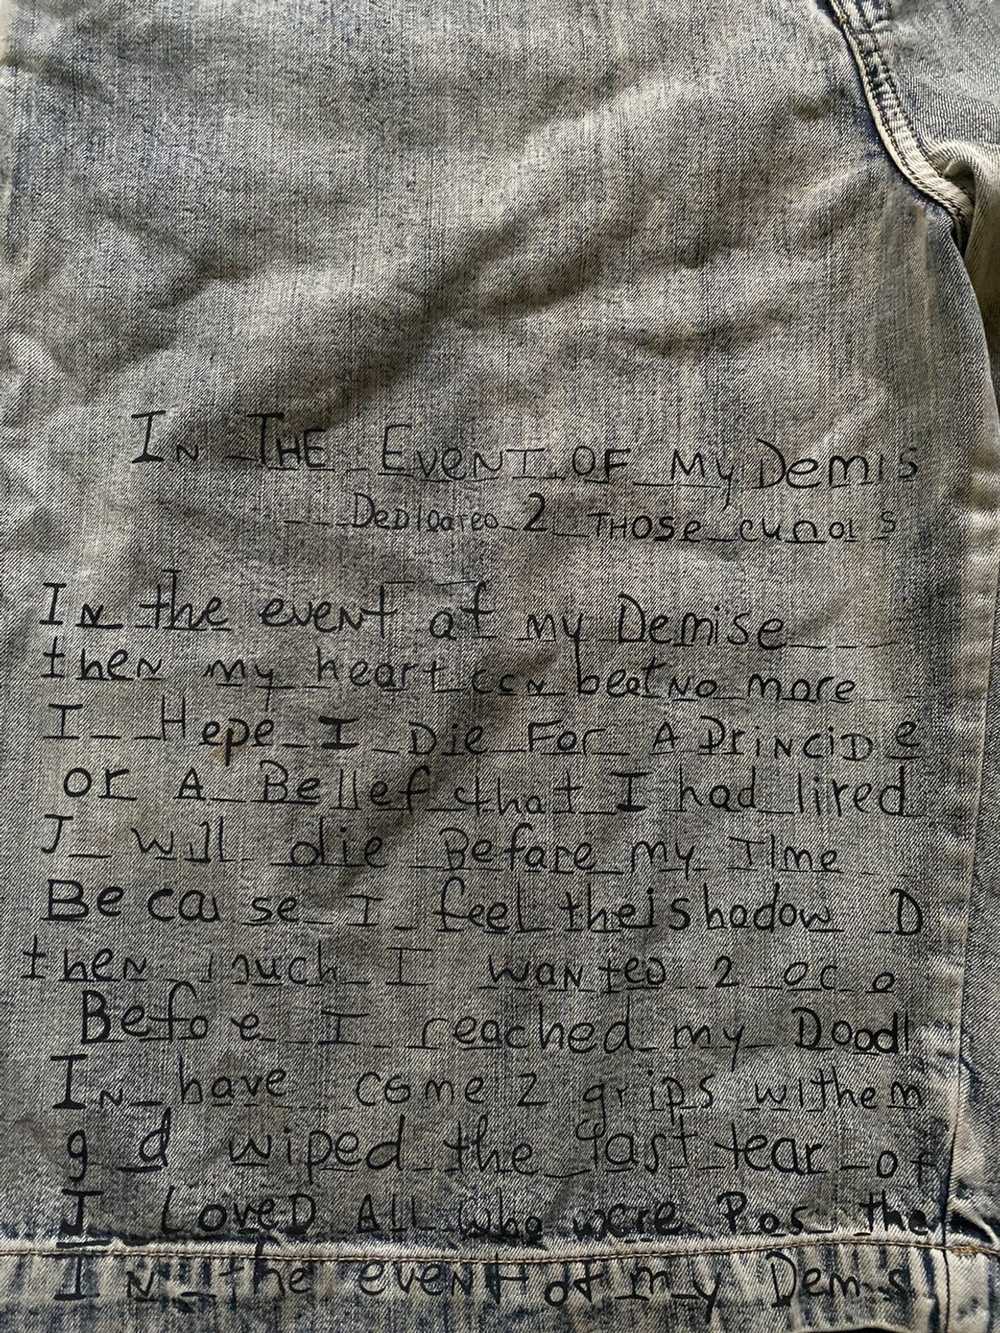 In THE EVENT OF My Demis
DeDIcateo 2 THOSE curiOI s
IN the event of my Demise
then my heart ccn beat No more
I Hope I Die For A PrinciD e
or A Bellef that I had lired
I will die Before my TIme
Be cau se I feel theishadow D
then much I wanteo 2 oc o
Befo e I reached my Dood
In have come 2 grips withem
g d wiped the last tear of
I Loved All who were Pos the
IN the event of my Demis